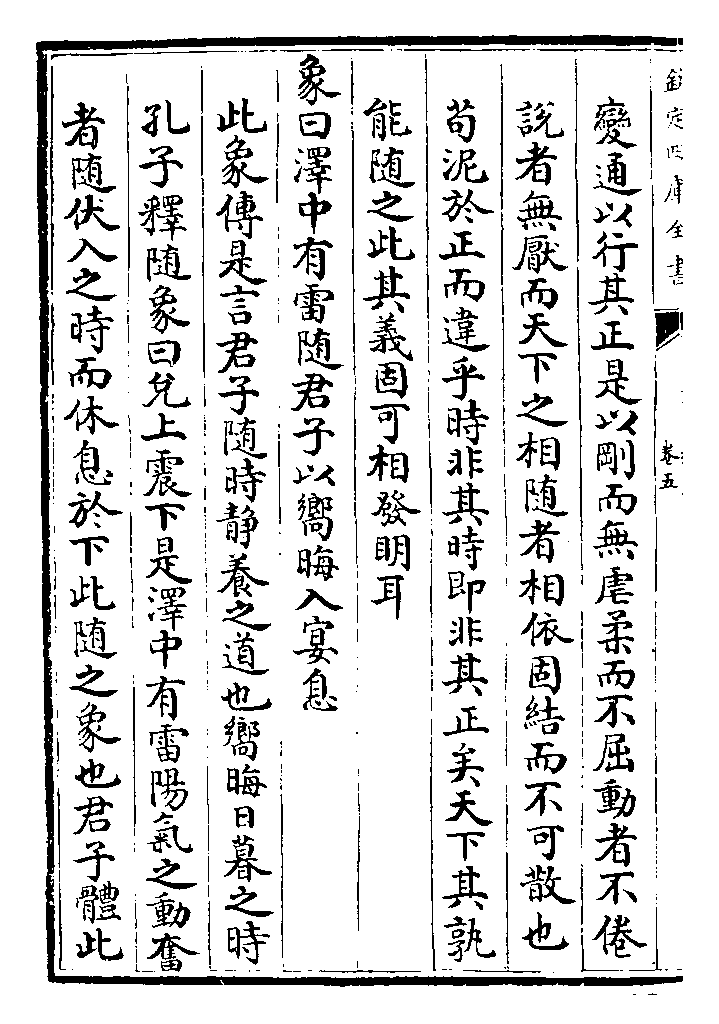 欽定四庫全書
卷五
變通以行其正是以剛而無虐柔而不屈動者不倦
說者無厭而天下之相随者相依固結而不可散也
苟泥於正而違乎時非其時即非其正矣天下其孰
能随之此其義固可相發明耳
象曰澤中有雷随君子以嚮晦入宴息
此象傳是言君子随時静養之道也嚮晦日暮之時
孔子釋随象曰兌上震下是澤中有雷陽氣之動奮
者随伏入之時而休息於下此随之象也君子體此